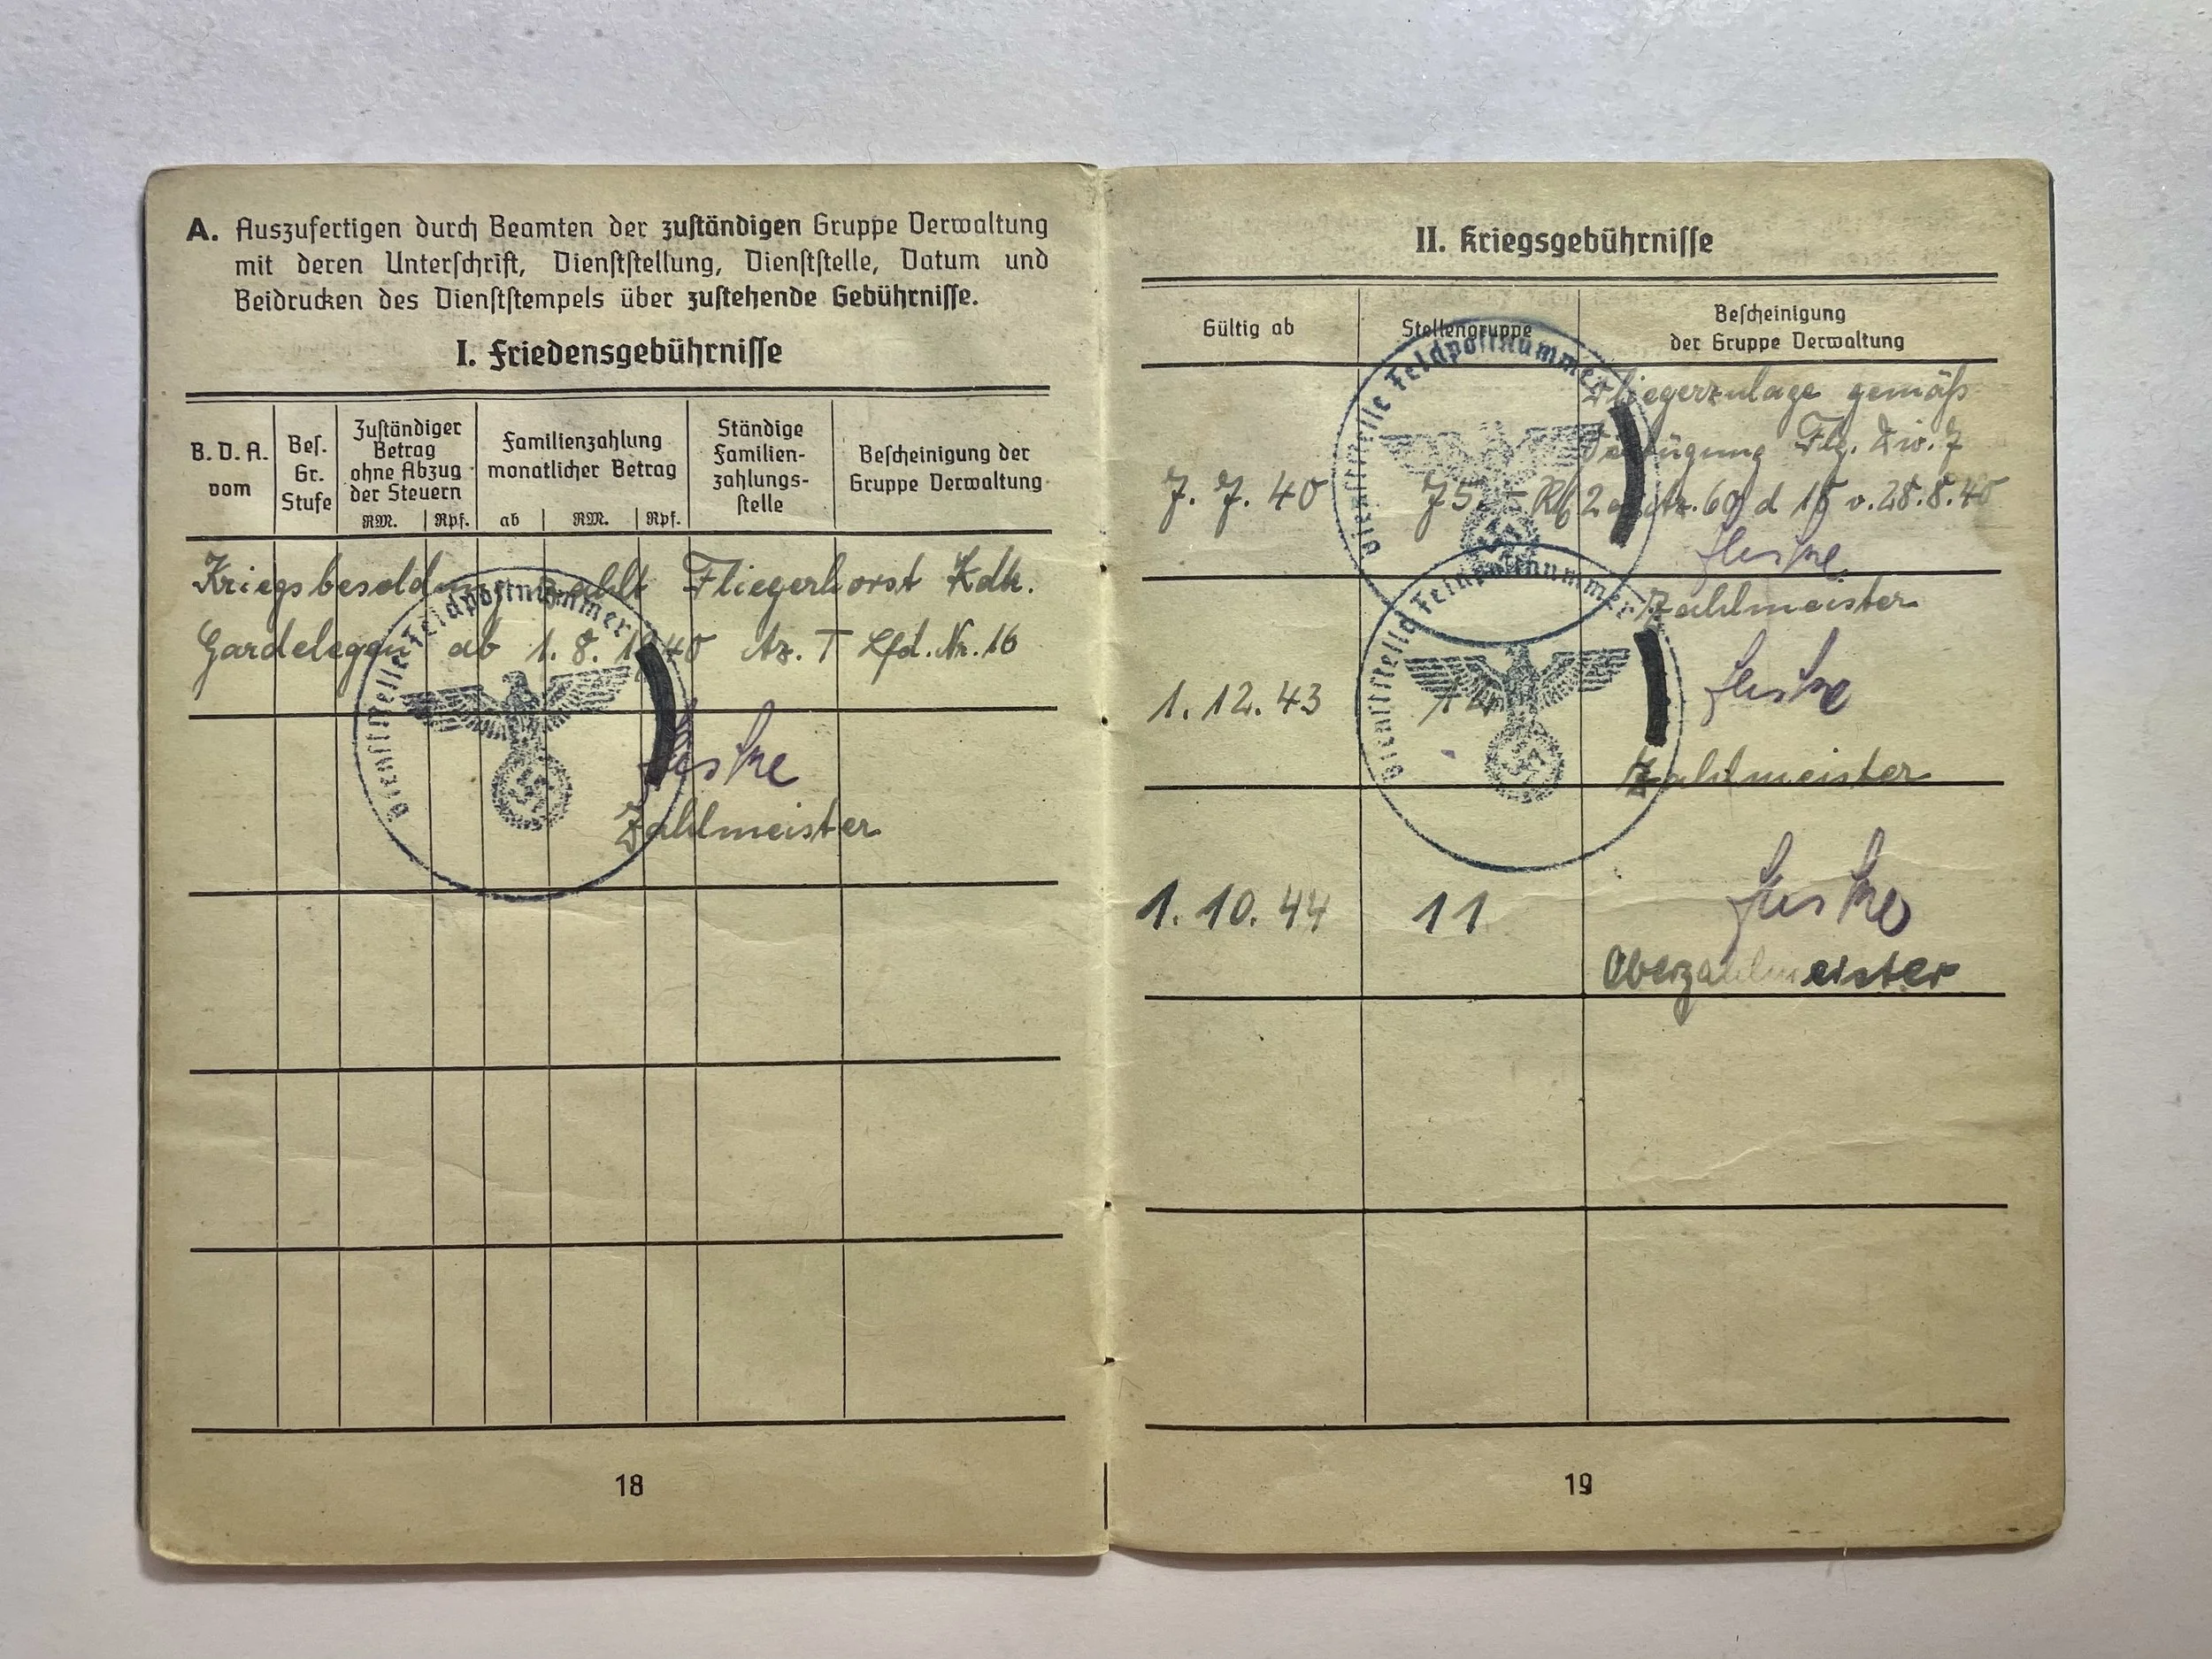 A. Auszufertigen durch Beamten der zuständigen Gruppe Verwaltung
mit deren Unterschrift, Dienststellung, Dienststelle, Datum und
Beidrucken des Dienststempels über zustehende Gebührnisse.
I. Friedensgebührnisse
B. D. A. vom
Bes. Gr. Stufe
Zuständiger Betrag ohne Abzug der Steuern
RM. Rpf.
Familienzahlung monatlicher Betrag
ab RM. Rpf.
Ständige Familien-zahlungs-stelle
Bescheinigung der Gruppe Verwaltung
Kriegsbesoldung zahlt Fliegerhorst Kdtr.
Gardelegen ab 1. 8. 1940 Az. T Lfd. Nr. 16
Dienststelle Feldpostnummer
Zahlmeister
18
II. Kriegsgebührnisse
Gültig ab
Stellengruppe
Bescheinigung
der Gruppe Verwaltung
Dienststelle Feldpostnummer
Fliegerzulage gemäß
Verfügung Flg. Div. 7
7. 7. 40 75,- v. 28.8.40
Zahlmeister
Dienststelle Feldpostnummer
1. 12. 43
Zahlmeister
1. 10. 44 11
Oberzahlmeister
19